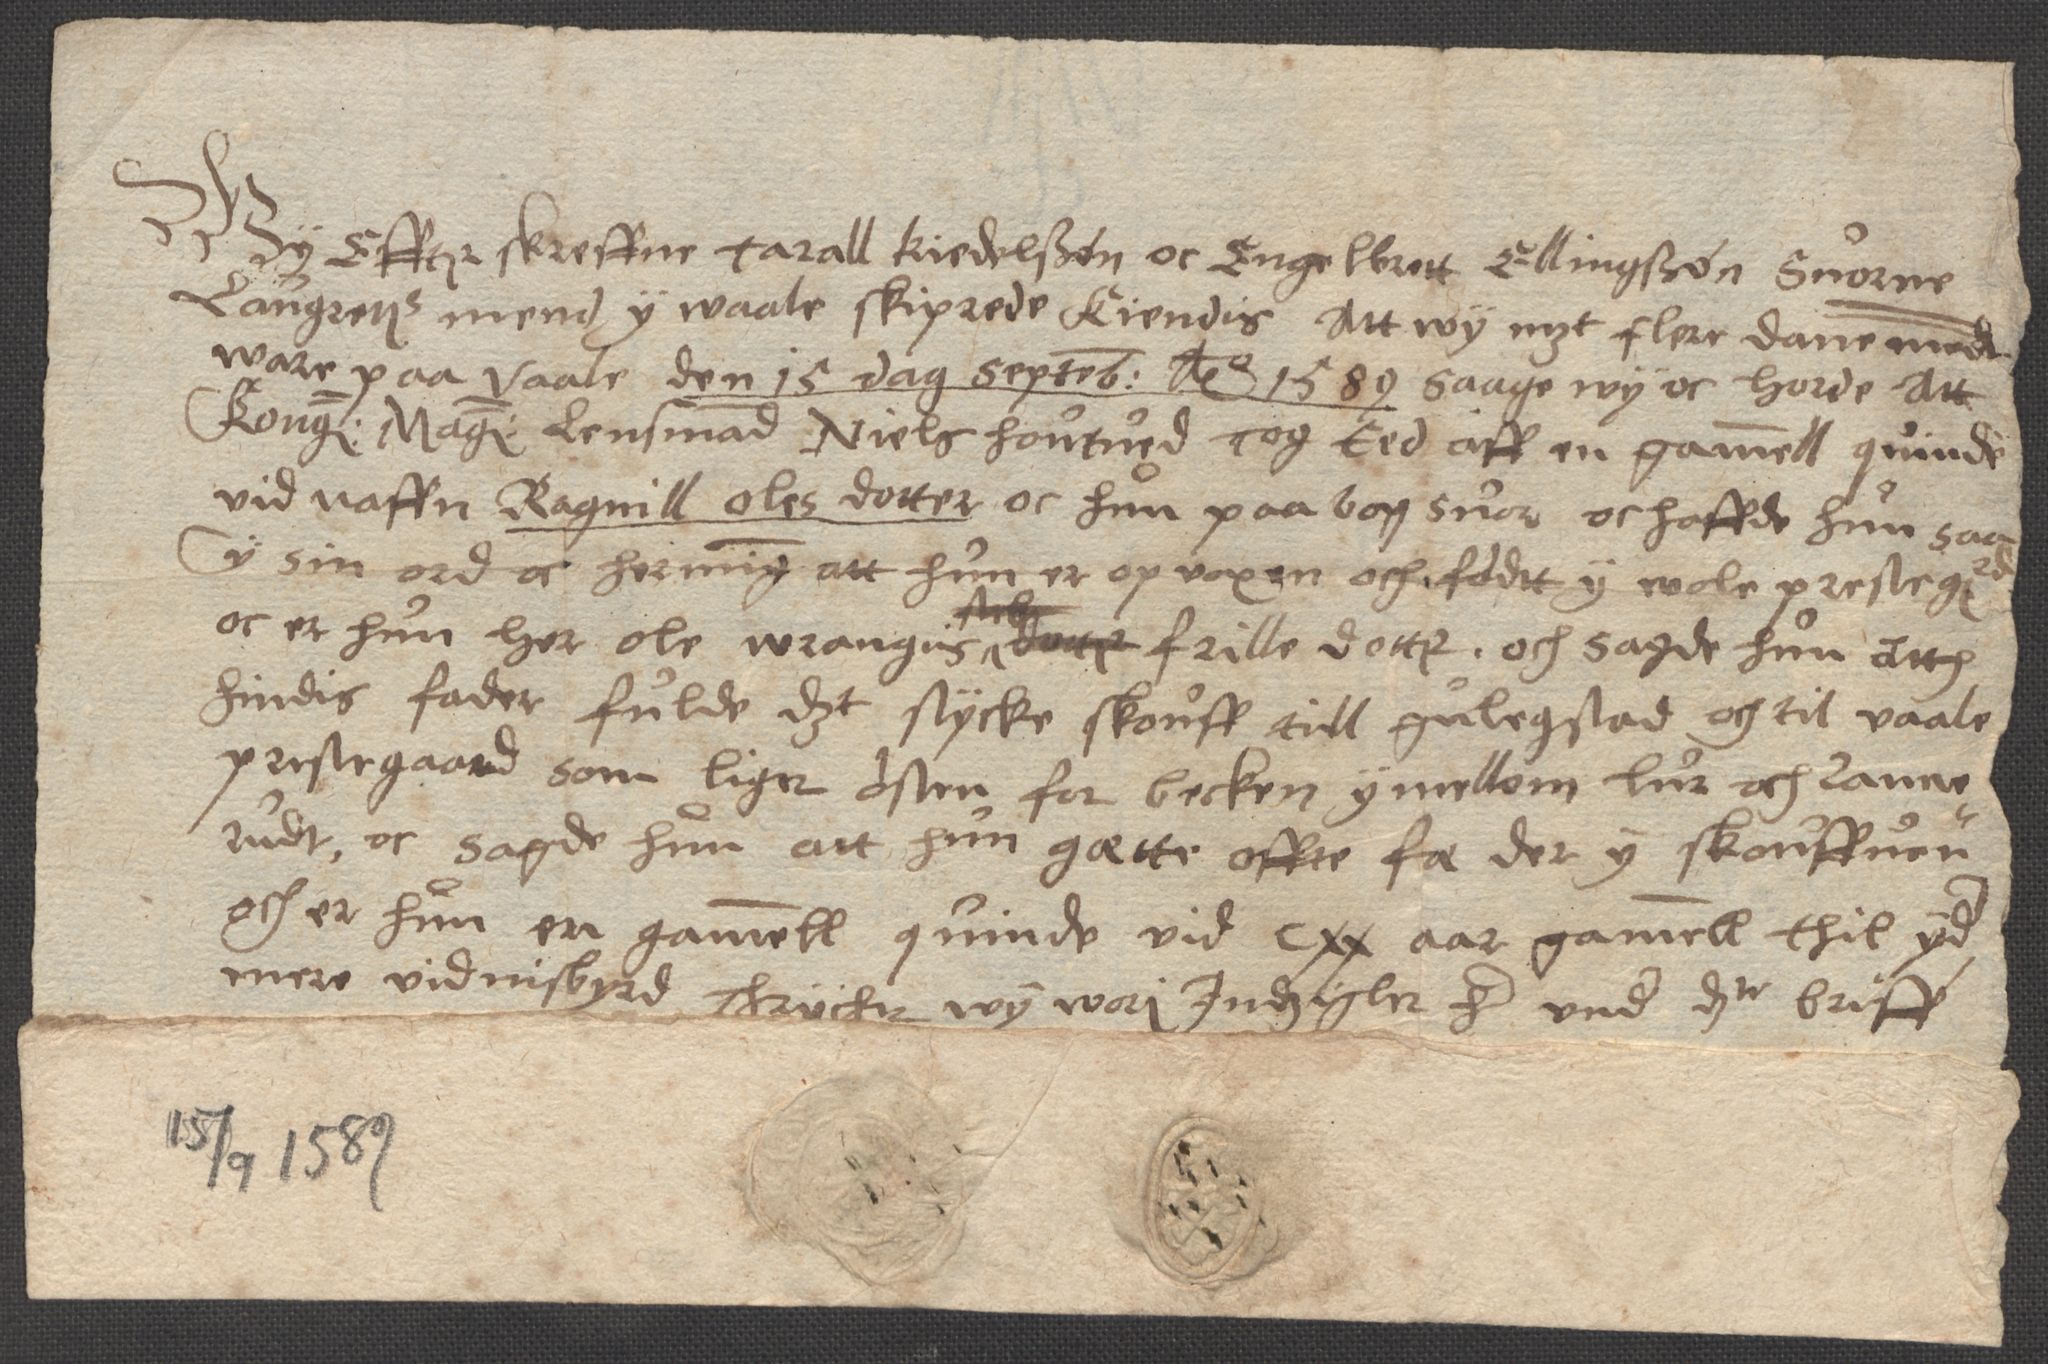 Wÿ Effter skreffne tarall kiedelßøn oc Engelbrett Ellingßøn Suorne
Laugretis mend ÿ waale skiprede Kiendis Att wÿ mzt flere dane mend
ware paa Vaale den 15 dag Septeb: Ao 1589 saage wÿ oc horde Att
Kong: Mag: Lensmad Niels houtued tog Eed aff en gamell quinde
vid naffn Ragnill oles dotter oc hun paa bog suor oc haffde hun saa
ÿ sin ord oc herming att hun er op voxen och fødtt ÿ wole presteg rd
oc er hun her ole wrangis dotter frille dotter. och sagde hun att
hindis fader fulde dzt stÿcke skouff till gulegstad och til vaale
prestegaard som liger østen for becken ÿmellom lur och Ranne
rudt, oc sagde hun att hun gætte offte fæ der ÿ skouffuen
och er hun en gamell quinde vid cxx aar gamell thil ÿd
mere vidnisbyrd thrÿcker wÿ wore Indzigler her und dzte breff
15/9 1589